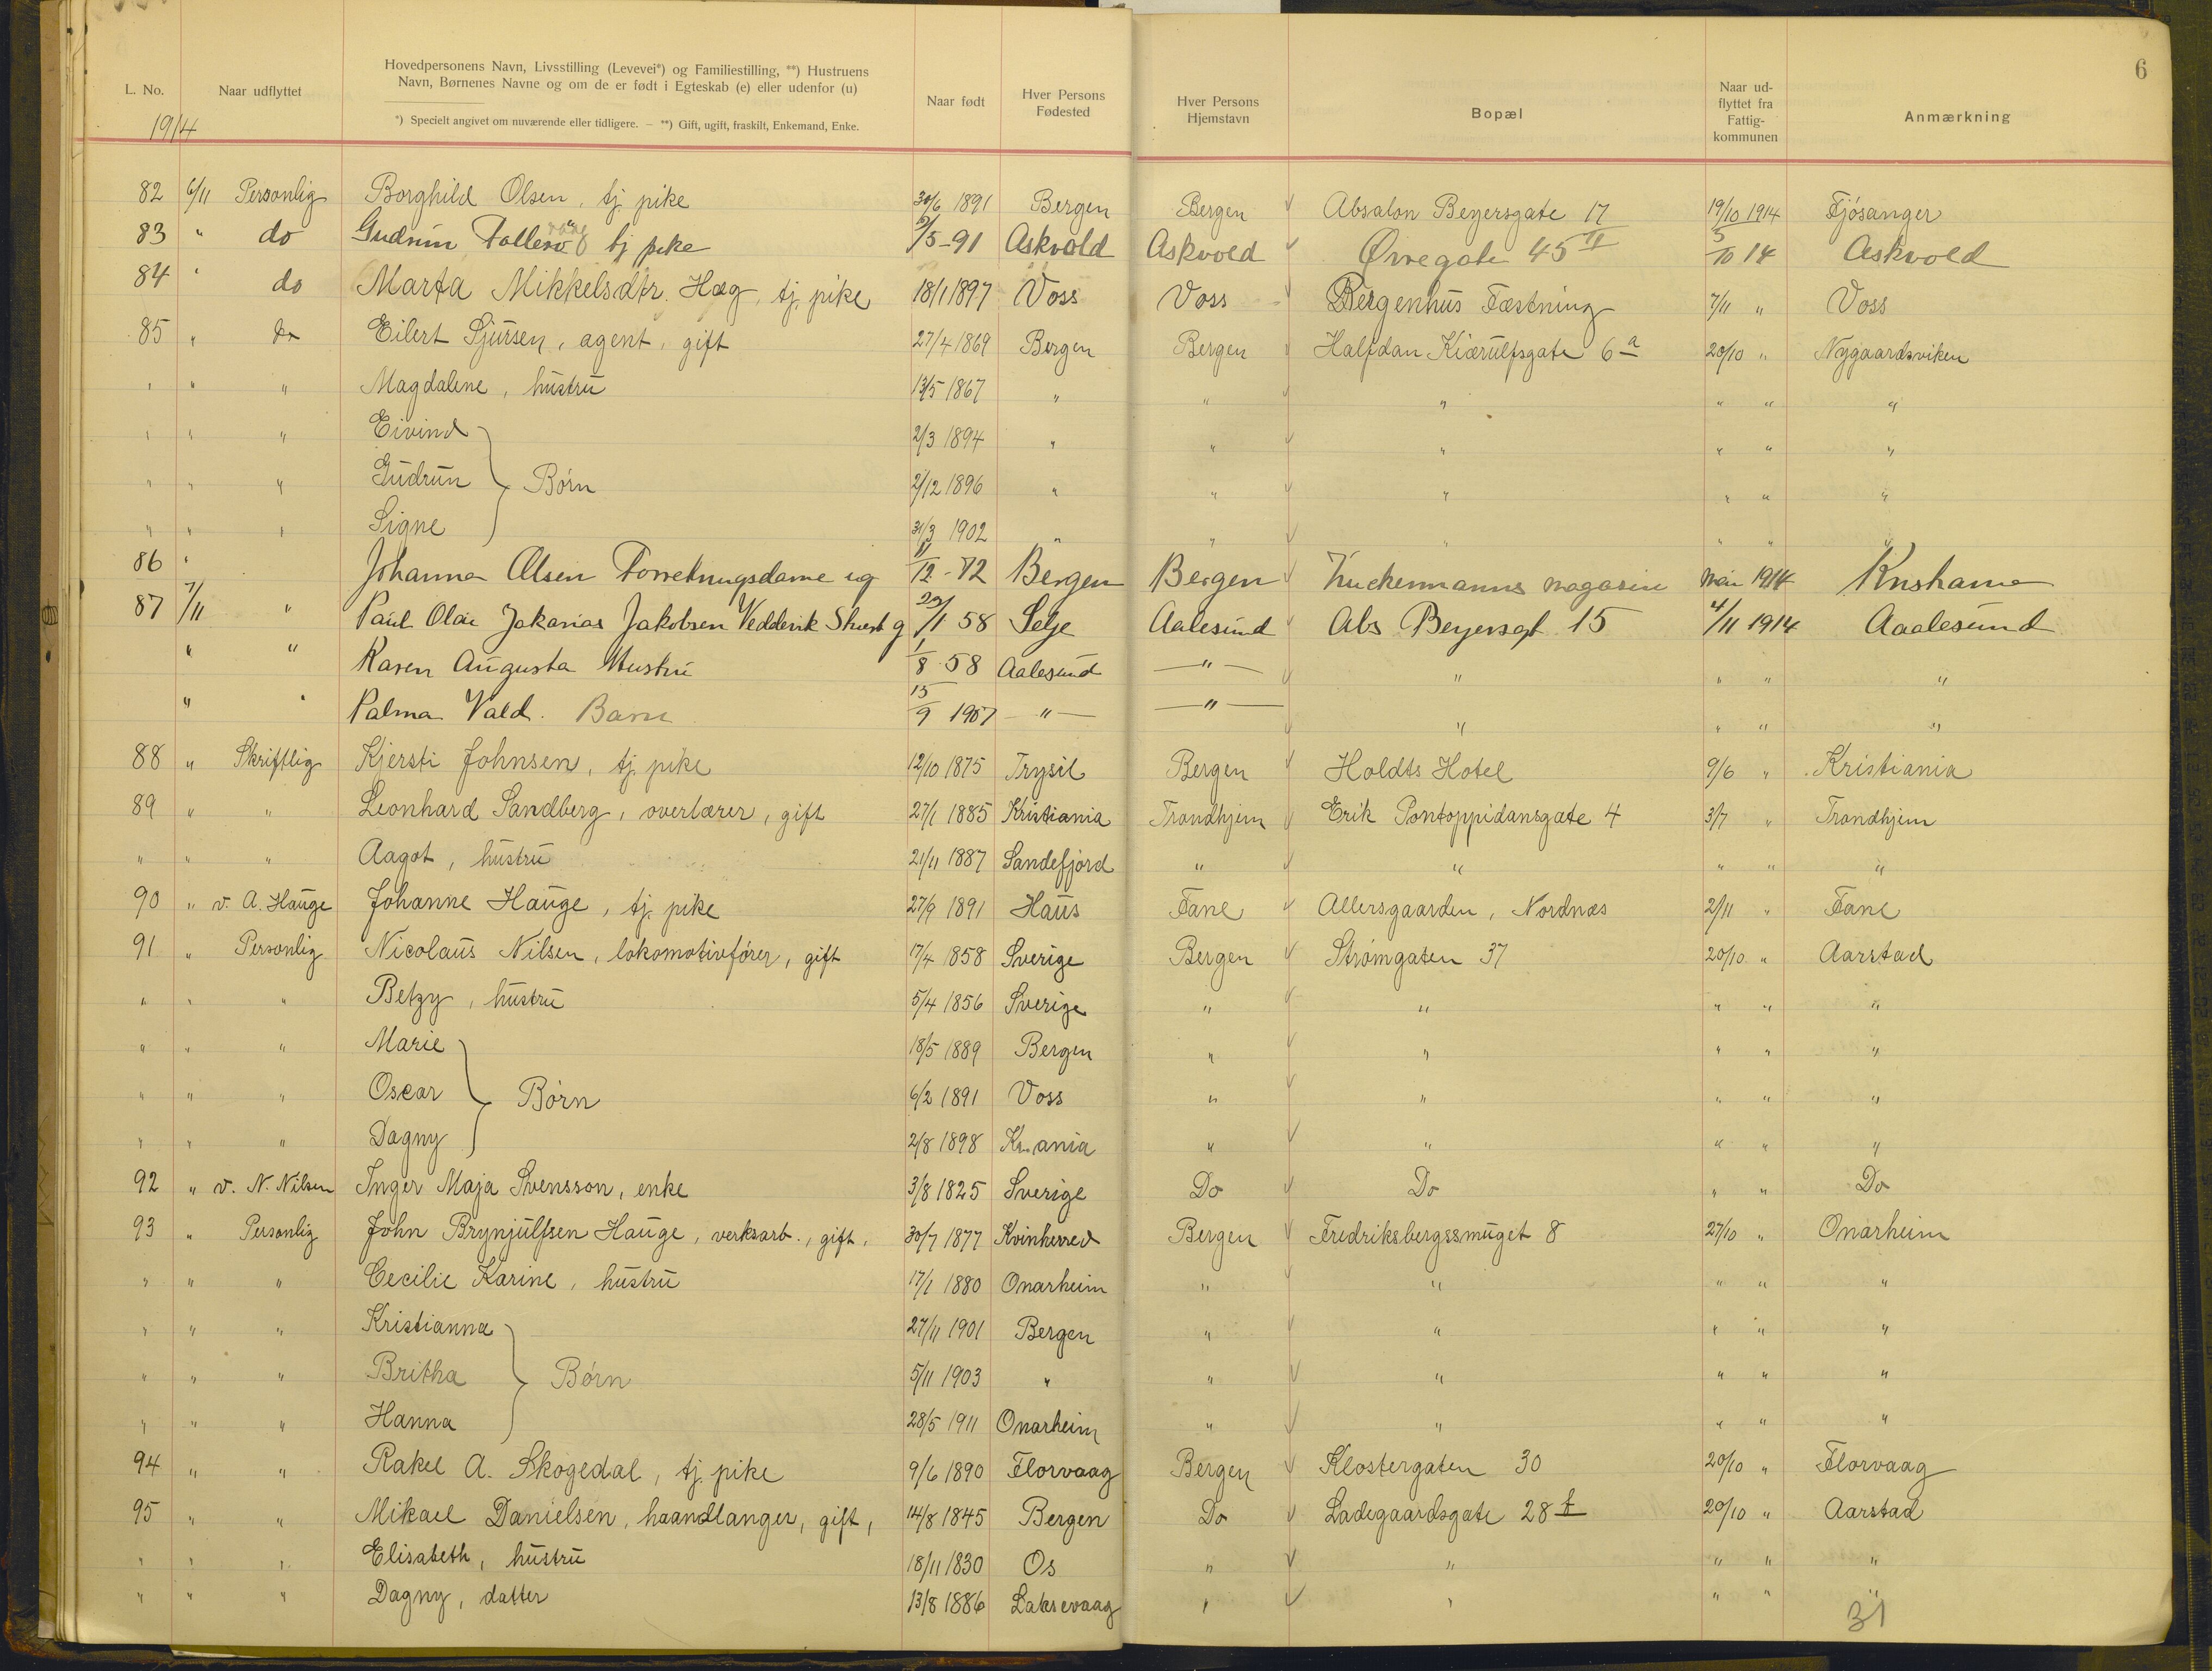 6
L. No. Naar udflyttet Hovedpersonens Navn, Livsstilling (Levevei*) og Familiestilling, **) Hustruens Navn, Børnenes Navne og om de er født i Egteskab (e) eller udenfor (u) Naar født Hver Persons Fødested Hver Persons Hjemstavn Bopæl Naar udflyttet fra Fattigkommunen Anmærkning
*) Specielt angivet om nuværende eller tidligere. — **) Gift, ugift, fraskilt, Enkemand, Enke.
1914
82 6/11 Personlig Borghild Olsen, tj. pike 30/6 1891 Bergen Bergen Absalon Beyersgate 17 19/10 1914 Fjøsanger
83 " do Gudrun tj pike /5-91 Askvold Askvold Øvregate 45 II 5/10 14 Askvold
84 " do Marta Mikkelsdtr. Hæg, tj. pike 18/1 1897 Voss Voss Bergenhus Fæstning 7/11 " Voss
85 " do Eilert Sjursen, agent, gift 27/4 1869 Bergen Bergen Halfdan Kiærulfsgate 6 a 20/10 " Nygaardsviken
" " " Magdalene, hustru 13/5 1867 " " " " " "
" " " Eivind 2/3 1894 " " " " " "
" " " Gudrun } Børn 2/12 1896 " " " " " "
" " " Signe 31/3 1902 " " " " " "
86 " Johanna Olsen Forretningsdame ug 11/12-72 Bergen Bergen magasin mai 1914
87 7/11 " Paul Olai Jakarias Jakobsen g 29/1 58 Selje Aalesund Abs Beyersgt 15 4/11 1914 Aaalesund
" " Karen Augusta Hustru 1/8 58 Aalesund — " — " " " "
" " Palma Vald. Barn 15/9 1907 — " — — " — " " " "
88 " Skriftlig Kjersti Johnsen, tj. pike 12/10 1875 Trysil Bergen Holdts Hotel 9/6 " Kristiania
89 " " Leonhard Sandberg, overlærer, gift 27/1 1885 Kristiania Trondhjem Erik Pontoppidansgate 4 3/7 " Trondhjem
" " " Aagot, hustru 21/11 1887 Sandefjord " " " " "
90 " v. A. Hauge Johanne Hauge, tj. pike 27/9 1891 Haus Fane Allersgaarden, Nordnæs 2/11 " Fane
91 " Personlig Nicolaus Nilsen, lokomotivfører, gift 17/4 1858 Sverige Bergen Strømgaten 37 20/10 " Aarstad
" " " Betzy, hustru 5/4 1856 Sverige " " " " "
" " " Marie 18/5 1889 Bergen " " " " "
" " " Oscar } Børn 6/2 1891 Voss " " " " "
" " " Dagny 2/8 1898 Kr.ania " " " " "
92 " v. N. Nilsen Inger Maja Svensson, enke 3/8 1825 Sverige Do Do " " Do
93 " Personlig John Brynjulfsen Hauge, verksarb., gift, 30/7 1877 Kvinherred Bergen Fredriksbergssmuget 8 27/10 " Onarheim
" " " Cecilie Karine, hustru 17/1 1880 Onarheim " " " " "
" " " Kristianna 27/11 1901 Bergen " " " " "
" " " Britha } Børn 5/11 1903 " " " " " "
" " " Hanna 28/5 1911 Onarheim " " " " "
94 " " Rakel A. Skogedal, tj. pike 9/6 1890 Florvaag Bergen Klostergaten 30 20/10 " Florvaag
95 " " Mikael Danielsen, haandlanger, gift, 14/8 1845 Bergen Do Ladegaardsgate 28 f 20/10 " Aarstad
" " " Elisabeth, hustru 18/11 1830 Os " " " " "
" " " Dagny, datter 13/8 1886 Laksevaag " " " " "
31